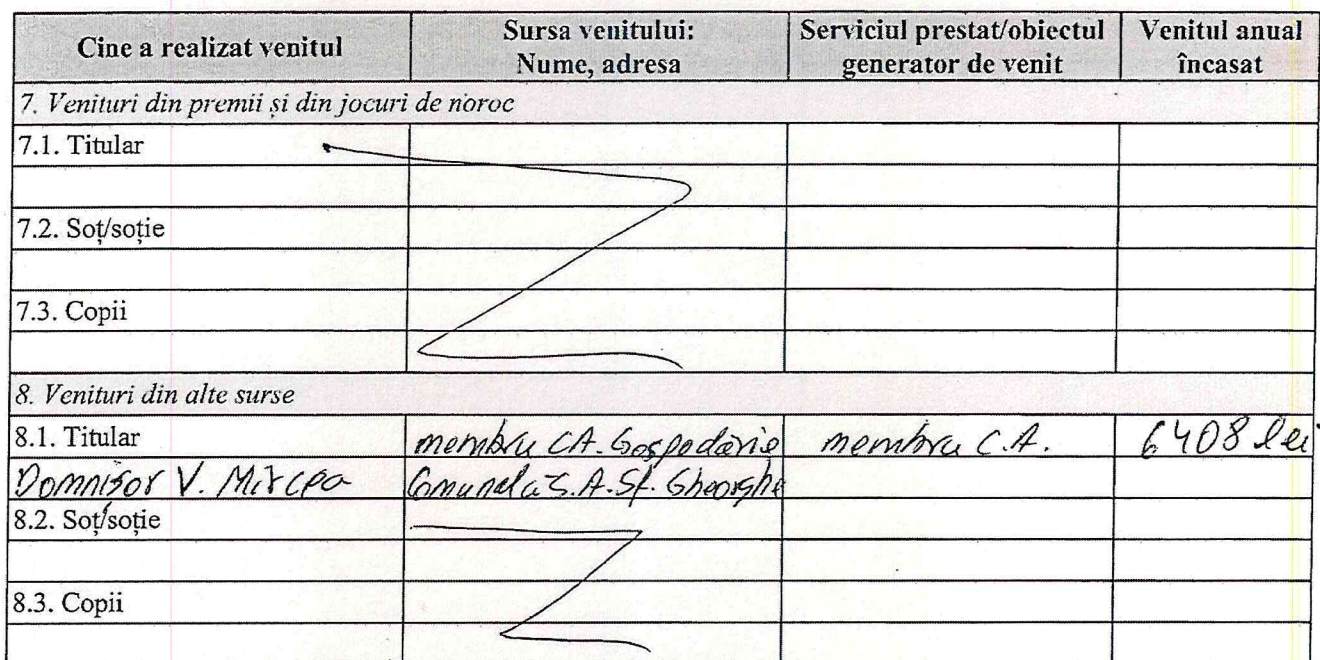 Cine a realizat venitul | Sursa venitului: Nume, adresa | Serviciul prestat/obiectul generator de venit | Venitul anual încasat
7. Venituri din premii și din jocuri de noroc
7.1. Titular
7.2. Soț/soție
7.3. Copii
8. Venituri din alte surse
8.1. Titular | membru C.A. Gospodărie | membru C.A. | 6408 lei
Domnisor V. Mircea | Comunala S.A. Sf. Gheorghe
8.2. Soț/soție
8.3. Copii